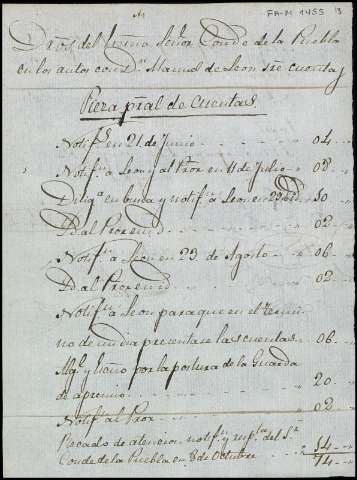 FA-M 1455 13
Dros. del Exmo Señor Conde de la Puebla
en los autos con Dn. Manuel de Leon sre cuentas
Pieza pral de Cuentas.
Notifon. en 21 de Junio 04
Notifn. a Leon y al Pror en 11 de Julio 08
Diliga. en busca y notifn. a Leon en 50
Id al Pror en id 02
Notifn. a Leon en 23 de Agosto 06
Id al Pror en id 02
Notifn. a Leon para que en el termi
no de un dia presentare las cuentas 06
por la postura de la Guarda
de apremio 20
Notifn. al Pror 02
Recado de atencion notifn. y del Sr.
Conde de la Puebla en 8 de Octubre 54
74